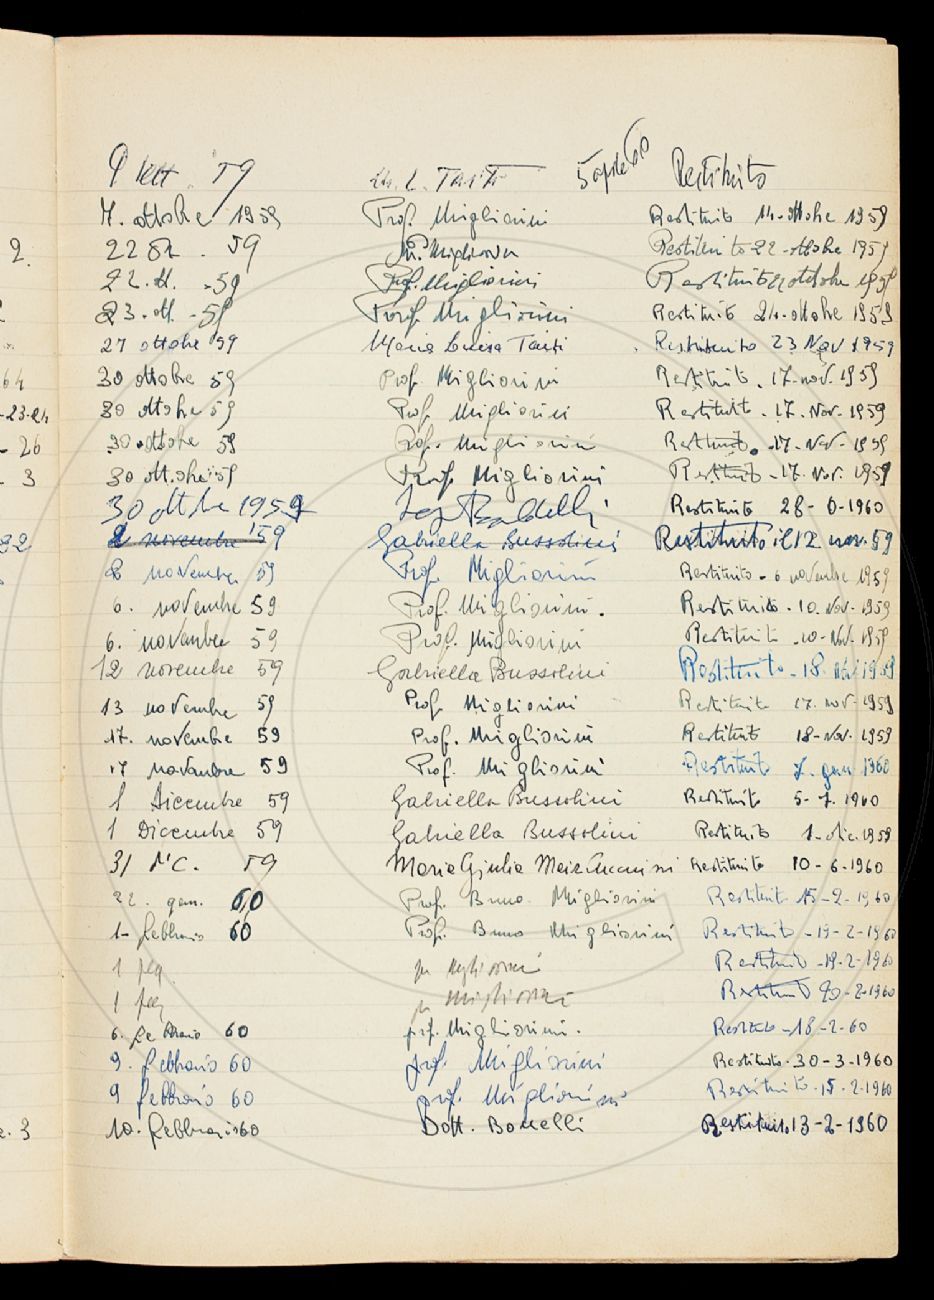 9 sett. 59 M. L. Tanti 5 aprile 60 Restituito
7. ottobre 1959 Prof. Migliorini Restituito 14-ottobre 1959
2. 22 59 Migliorini Restituito 22-ottobre 1959
22. ott. -59 Prof. Migliorini Restituito ottobre 1959
23. ott. -59 Prof. Migliorini Restituito 24-ottobre 1959
27 ottobre 59 Maria Luisa Tanti Restituito 23 Nov 1959
64 30 ottobre 59 Prof. Migliorini Restituito. 17-nov. 1959
-23-24 30 ottobre 59 Prof. Migliorini Restituito. 17-Nov. 1959
- 26 30 ottobre 59 Prof. Migliorini Restituito. 17-Nov-1959
- 3 30 ottobre 59 Prof. Migliorini Restituito-17-Nov. 1959
30 ottobre 1959 Baldelli Restituito 28- -1960
2 novembre '59 Gabriella Bussolini Restituito il 12 nov. 59
2 novembre 59 Prof. Migliorini Restituito-6 novembre 1959
6. novembre 59 Prof. Migliorini. Restituito. 10. Nov. 1959
6. novembre 59 Prof. Migliorini Restituito -10-Nov. 1959
12 novembre 59 Gabriella Bussolini Restituito-18. 1959
13 novembre 59 Prof. Migliorini Restituito 17. nov. 1959
17. novembre 59 Prof. Migliorini Restituito 18-Nov. 1959
17 novembre 59 Prof. Migliorini Restituito 7. gen 1960
1 Dicembre 59 Gabriella Bussolini Restituito 5-7. 1960
1 Dicembre 59 Gabriella Bussolini Restituito 1-dic. 1959
31 DIC. 59 Maria Giulia Restituito 10-6-1960
22. gen. 60 Prof. Bruno Migliorini Restituito 15-2-1960
1- febbraio 60 Prof. Bruno Migliorini Restituito -19-2-1960
1 Migliorini Restituito -19-2-1960
1 Migliorini Restituito -2-1960
6. febbraio 60 prof. Migliorini. Restituito -18-2-60
9. febbraio 60 prof. Migliorini Restituito-30-3-1960
9 febbraio 60 prof. Migliorini Restituito-15-2-1960
3 10. febbraio 60 Dott. Bonelli Restituito 13-2-1960